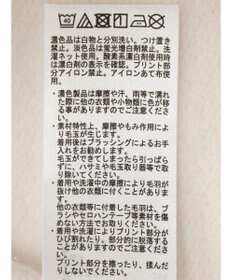 40
濃色品は白物と分別洗い。つけ置き
禁止。淡色品は蛍光増白剤禁止。洗
濯ネット使用。酸素系漂白剤使用時
は漂白剤の表示を確認。プリント部
分アイロン禁止。アイロンあて布使
用。
・濃色製品は摩擦や汗、雨等で濡れ
た際に他の衣類や小物類に色が移
る事がありますのでご注意くださ
い。
・素材特性上、摩擦やもみ作用により
毛玉が生じます。
着用後はブラッシングによるお手
入れをお勧めします。
毛玉ができてしまったら引っぱら
ずに、ハサミや毛玉取り器等で、取
り除いてください。
・着用や洗濯中の摩擦により毛羽が
抜け他の衣類等に付くことがあり
ます。
他の衣類等に付着した毛羽は、ブ
ラシやセロハンテープ等で衣類を傷
めない方法でお取りください。
・着用や洗濯によりプリント部分が
ひび割れたり、部分的に脱落する
ことがありますのでご注意くださ
い。
プリント部分を擦ったり、揉んだ
りしないでください。